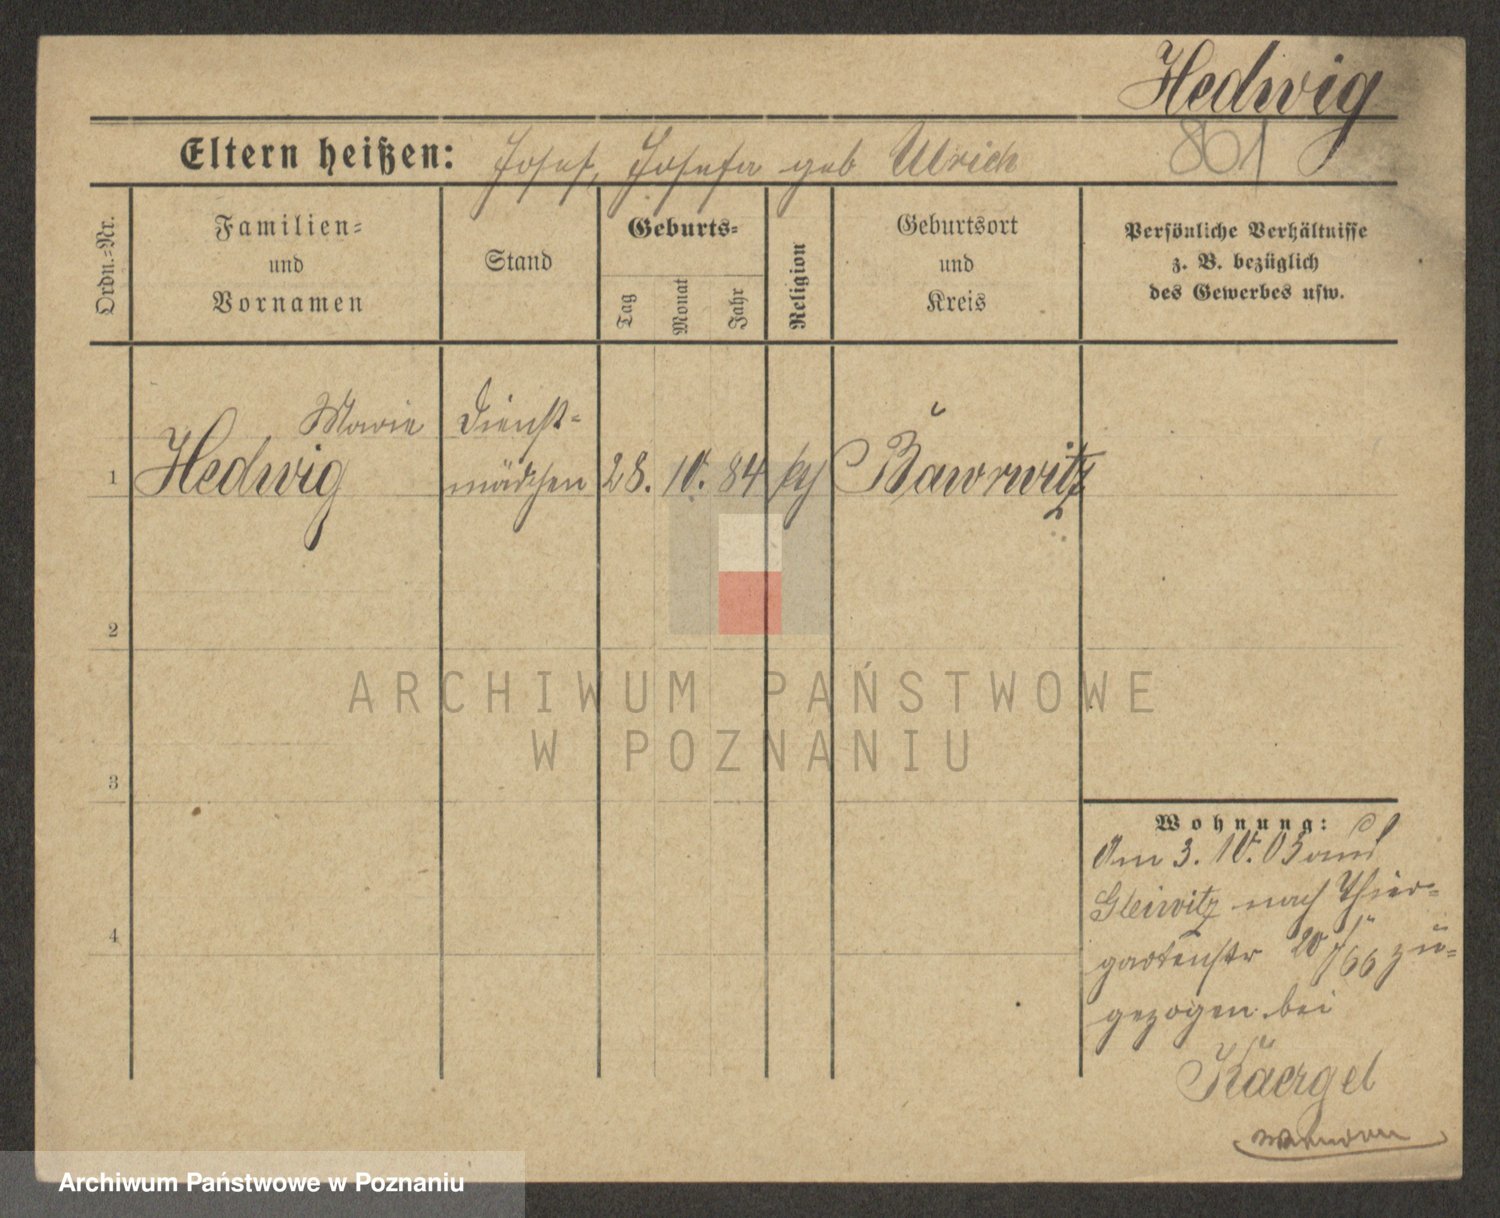 Hedwig
Eltern heißen: Josef, Josefa geb Ulrich 801
Ordn.=Nr.
Familien=
und
Vornamen
Stand
Geburts=
Tag
Monat
Jahr
Religion
Geburtsort
und
Kreis
Persönliche Verhältnisse
z. B. bezüglich
des Gewerbes usw.
Marie Dienst=
1 Hedwig mädchen 28. 10. 84 kth Bawrwitz
2
3
4
Wohnung:
Am 3. 10. 03 aus
Gleiwitz nach Thier=
gartenstr zu=
gezogen bei
Kaergel
wenden
ARCHIWUM PAŃSTWOWE
W POZNANIU
Archiwum Państwowe w Poznaniu